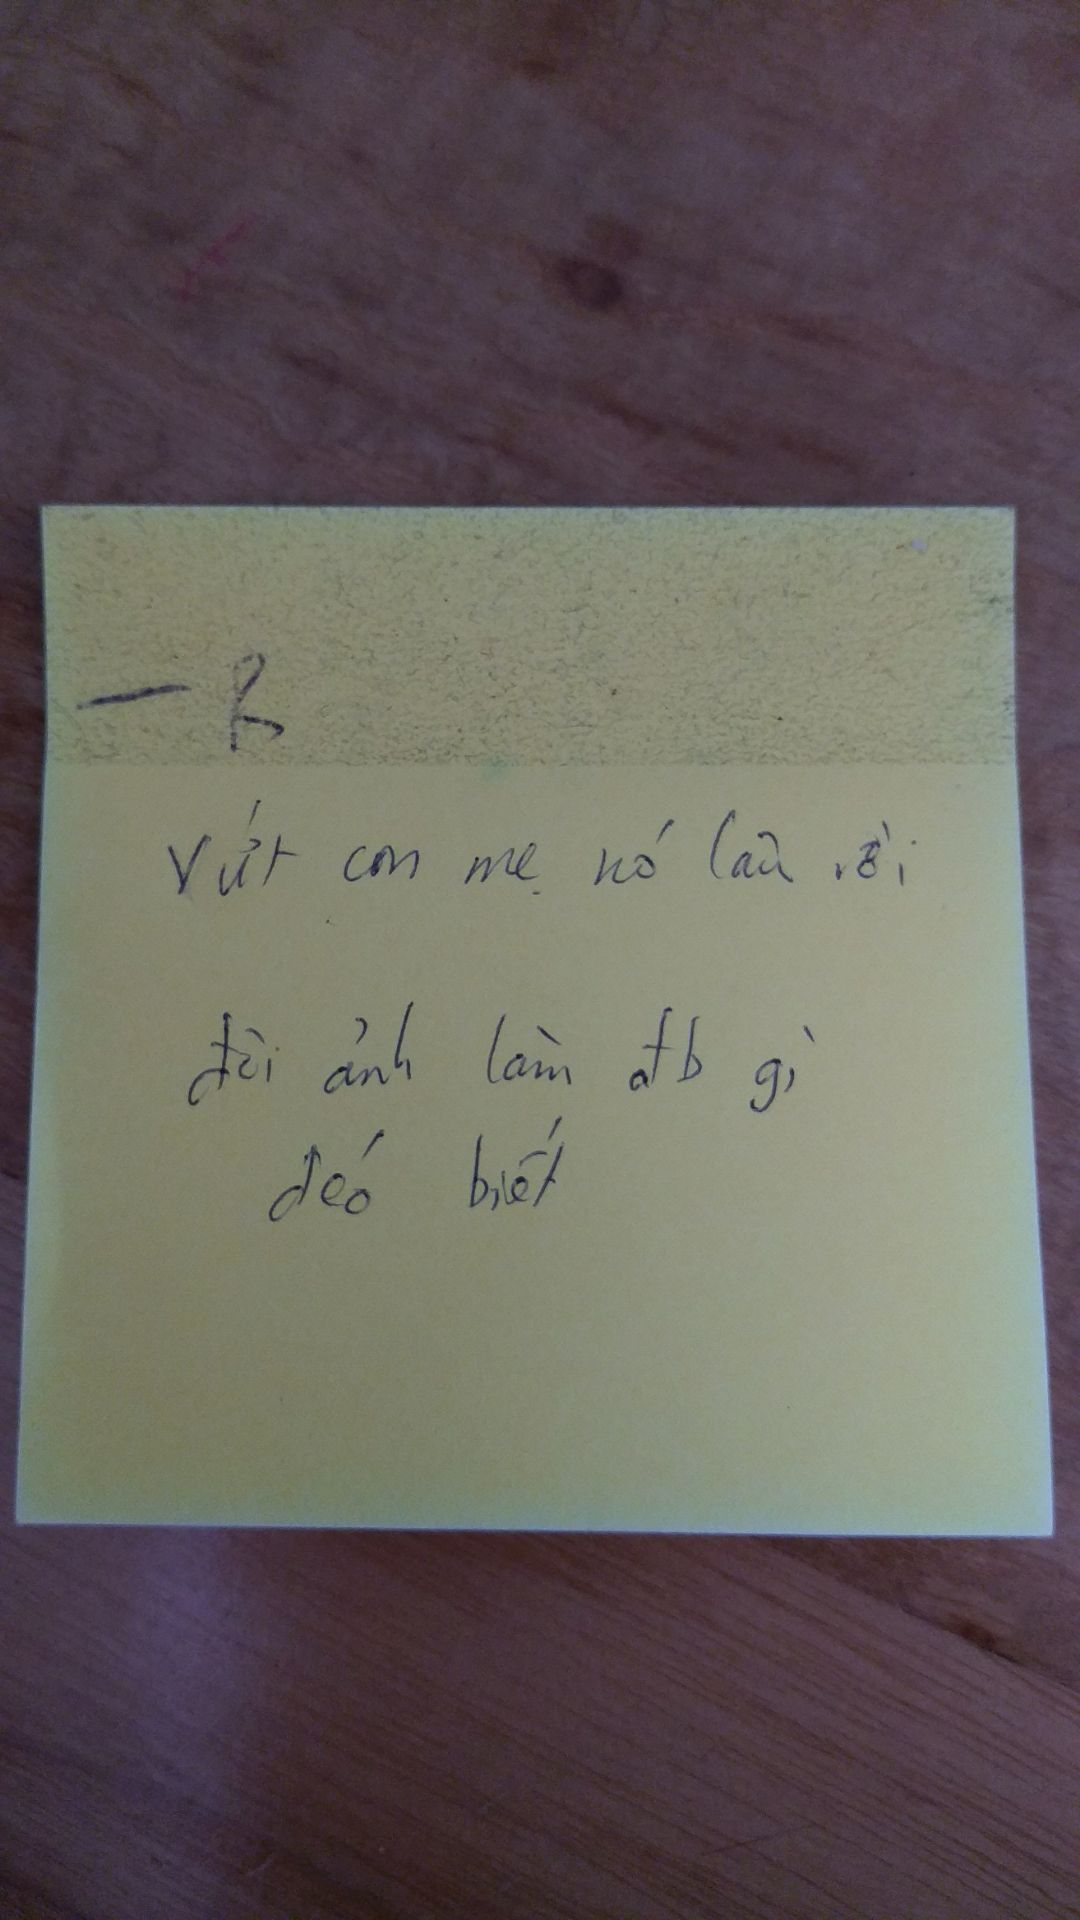 — R
Vứt con mẹ nó lâu rồi
đòi ảnh làm đb gì
đéo biết